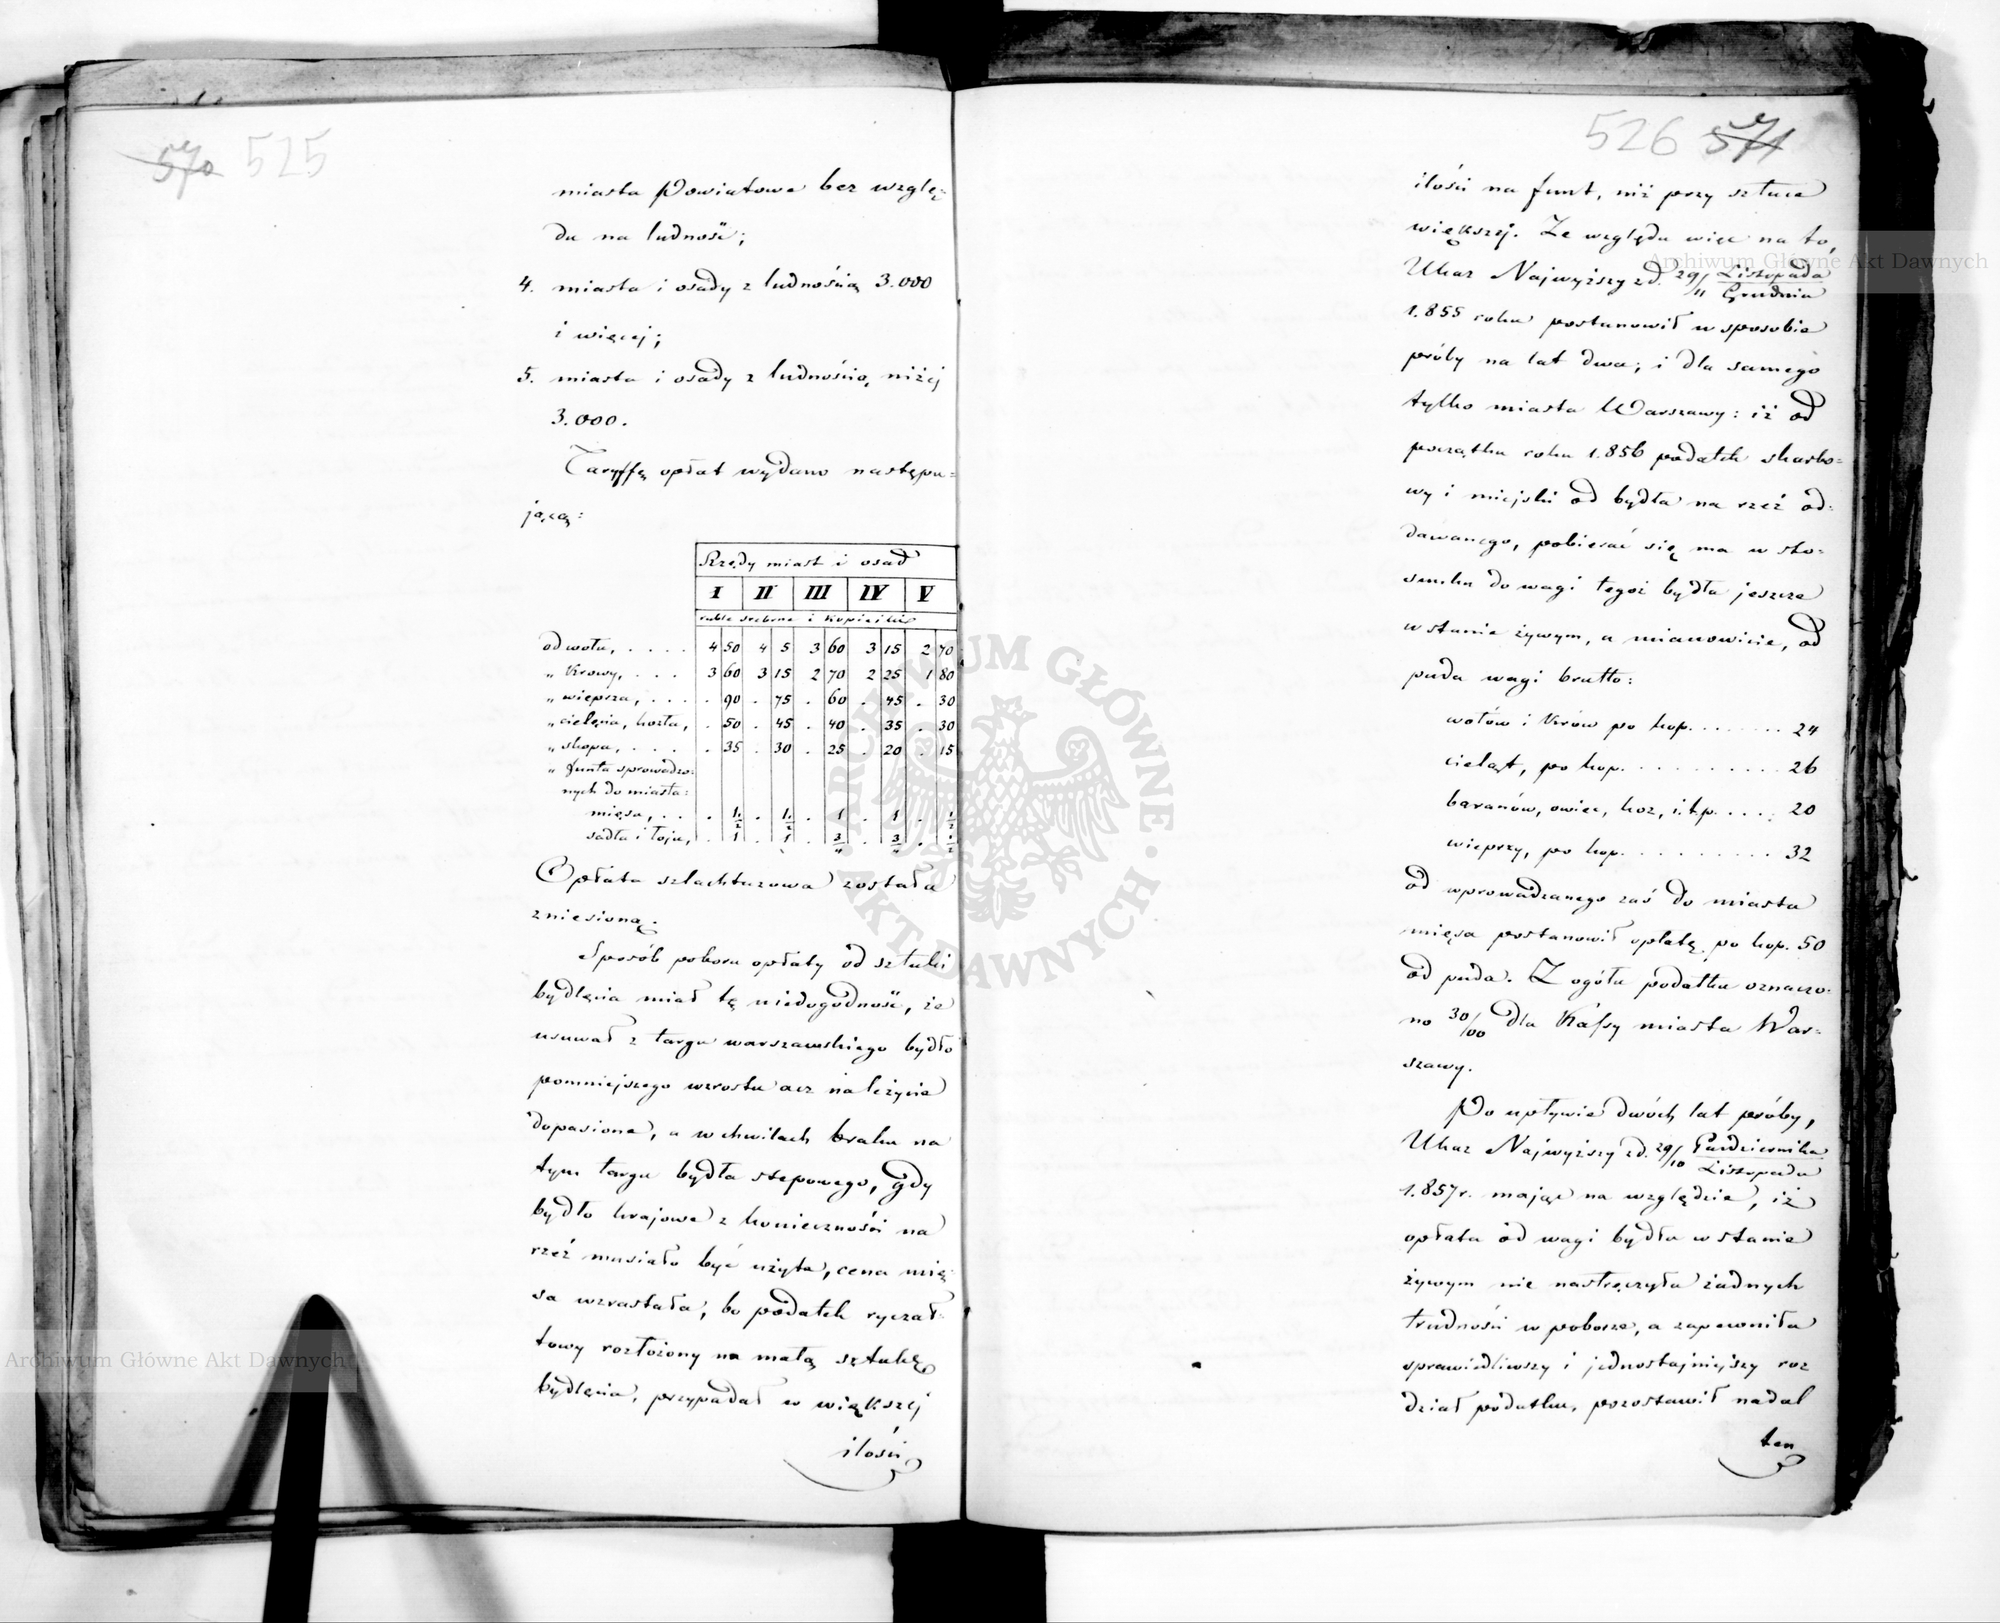 570 525
miasta Powiatowe bez wzglę-
du na ludność;
4. miasta i osady z ludnością 3.000
i więcej;
5. miasta i osady z ludnością niżej
3.000.
Taryffę opłat wydano następu-
jącą:
Rzędy miast i osad
I II III IV V
ruble srebrne i kopiejki
od wołu, . . . . 4 50 4 5 3 60 3 15 2 70
" krowy, . . . 3 60 3 15 2 70 2 25 1 80
" wieprza, . . . . 90 . 75 . 60 . 45 . 30
" cielęcia, kozła, . 50 . 45 . 40 . 35 . 30
" skopa, . . . . 35 . 30 . 25 . 20 . 15
" funta sprowadzo-
nych do miasta:
mięsa, . . . 1½ . 1½ . 1 . 1 . ½
sadła i łoju, . 1 . 1 . ¾ . ¾ . ½
Opłata szlachtuzowa została
zniesioną.
Sposób poboru opłaty od sztuki
bydlęcia miał tę niedogodność, że
usuwał z targu warszawskiego bydło
pomniejszego wzrostu acz należycie
dopasione, a w chwilach braku na
tym targu bydła stepowego, gdy
bydło krajowe z konieczności na
rzeź musiało być użyte, cena mię-
sa wzrastała, bo podatek ryczał-
towy rozłożony na małą sztukę
bydlęcia, przypadał w większej
ilości
526 571
ilości na funt, niż przy sztuce
większej. Ze względu więc na to,
Ukaz Najwyższy z d. 29/11 Listopada/Grudnia
1.855 roku postanowił w sposobie
próby na lat dwa; i dla samego
tylko miasta Warszawy: iż od
początku roku 1.856 podatek skarbo-
wy i miejski od bydła na rzeź od-
dawanego, pobierać się ma w sto-
sunku do wagi tegoż bydła jeszcze
w stanie żywym, a mianowicie, od
puda wagi brutto:
wołów i krów po kop. . . . . . . . 24
cieląt, po kop. . . . . . . . . . 26
baranów, owiec, koz, i.t.p. . . . . 20
wieprzy, po kop. . . . . . . . . . 32
od wprowadzanego zaś do miasta
mięsa postanowił opłatę po kop. 50
od puda. Z ogółu podatku oznaczo-
no 30/00 dla Kassy miasta War-
szawy.
Po upływie dwóch lat próby,
Ukaz Najwyższy z d. 29/10 Października/Listopada
1.857 r. mając na względzie, iż
opłata od wagi bydła w stanie
żywym nie nastręczyła żadnych
trudności w poborze, a zapewniła
sprawiedliwszy i jednostajniejszy roz
dział podatku, pozostawił nadal
ten
ARCHIWUM GŁÓWNE
AKT DAWNYCH
Archiwum Główne Akt Dawnych
Archiwum Główne Akt Dawnych